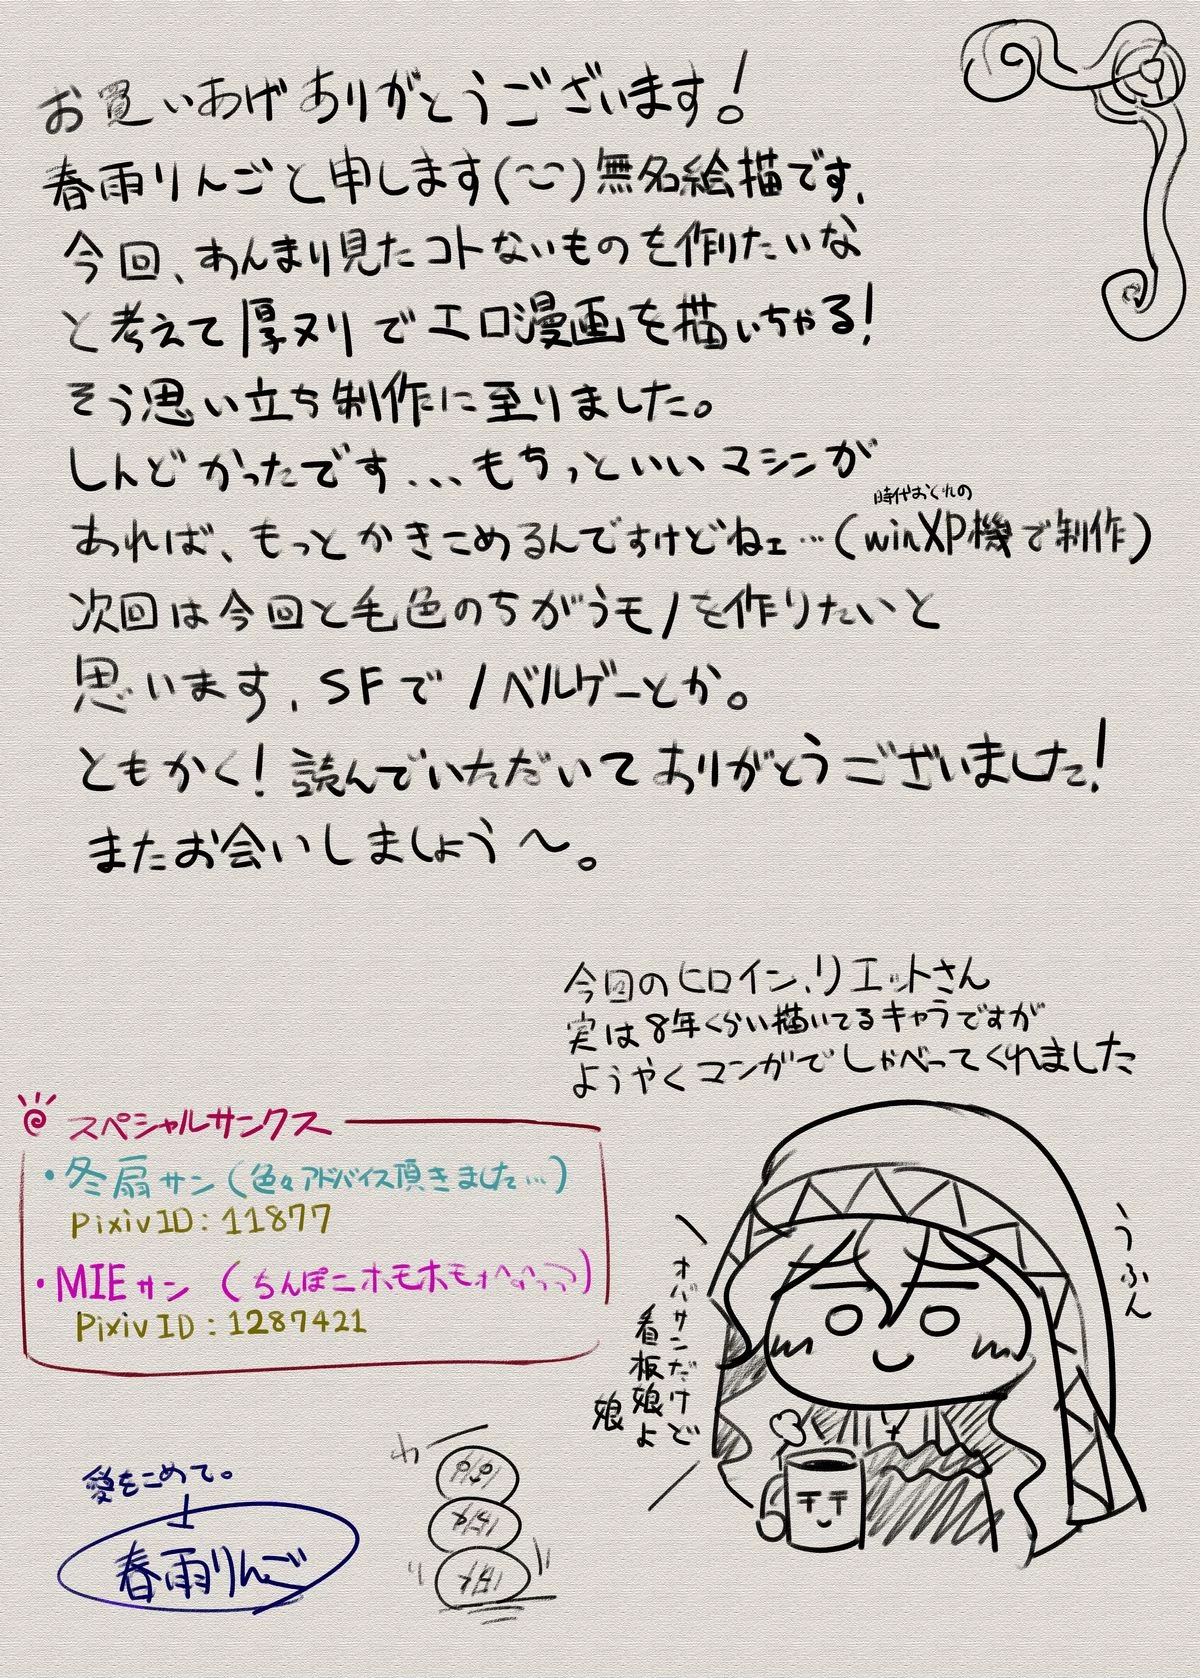 お買いあげありがとうございます!
春雨りんごと申します(^^)無名絵描です、
今回、あんまり見たコトないものを作りたいな
と考えて厚ヌリでエロ漫画を描いちゃる!
そう思い立ち制作に至りました。
しんどかったです...もちっといいマシンが
時代おくれの
あれば、もっとかきこめるんですけどねェ…(winXP機で制作)
次回は今回と毛色のちがうモノを作りたいと
思います、SFでノベルゲーとか。
ともかく!読んでいただいてありがとうございました!
またお会いしましょう〜。
今回のヒロイン、リエットさん
実は8年くらい描いてるキャラですが
ようやくマンガでしゃべってくれました
スペシャルサンクス
・冬扇サン(色々アドバイス頂きました…)
Pixiv ID:11877
・MIEサン(ちんぽニホモホモ
Pixiv ID:1287421
うふん
オバサンだけど
看板娘よ
娘
愛をこめて。
春雨りんご